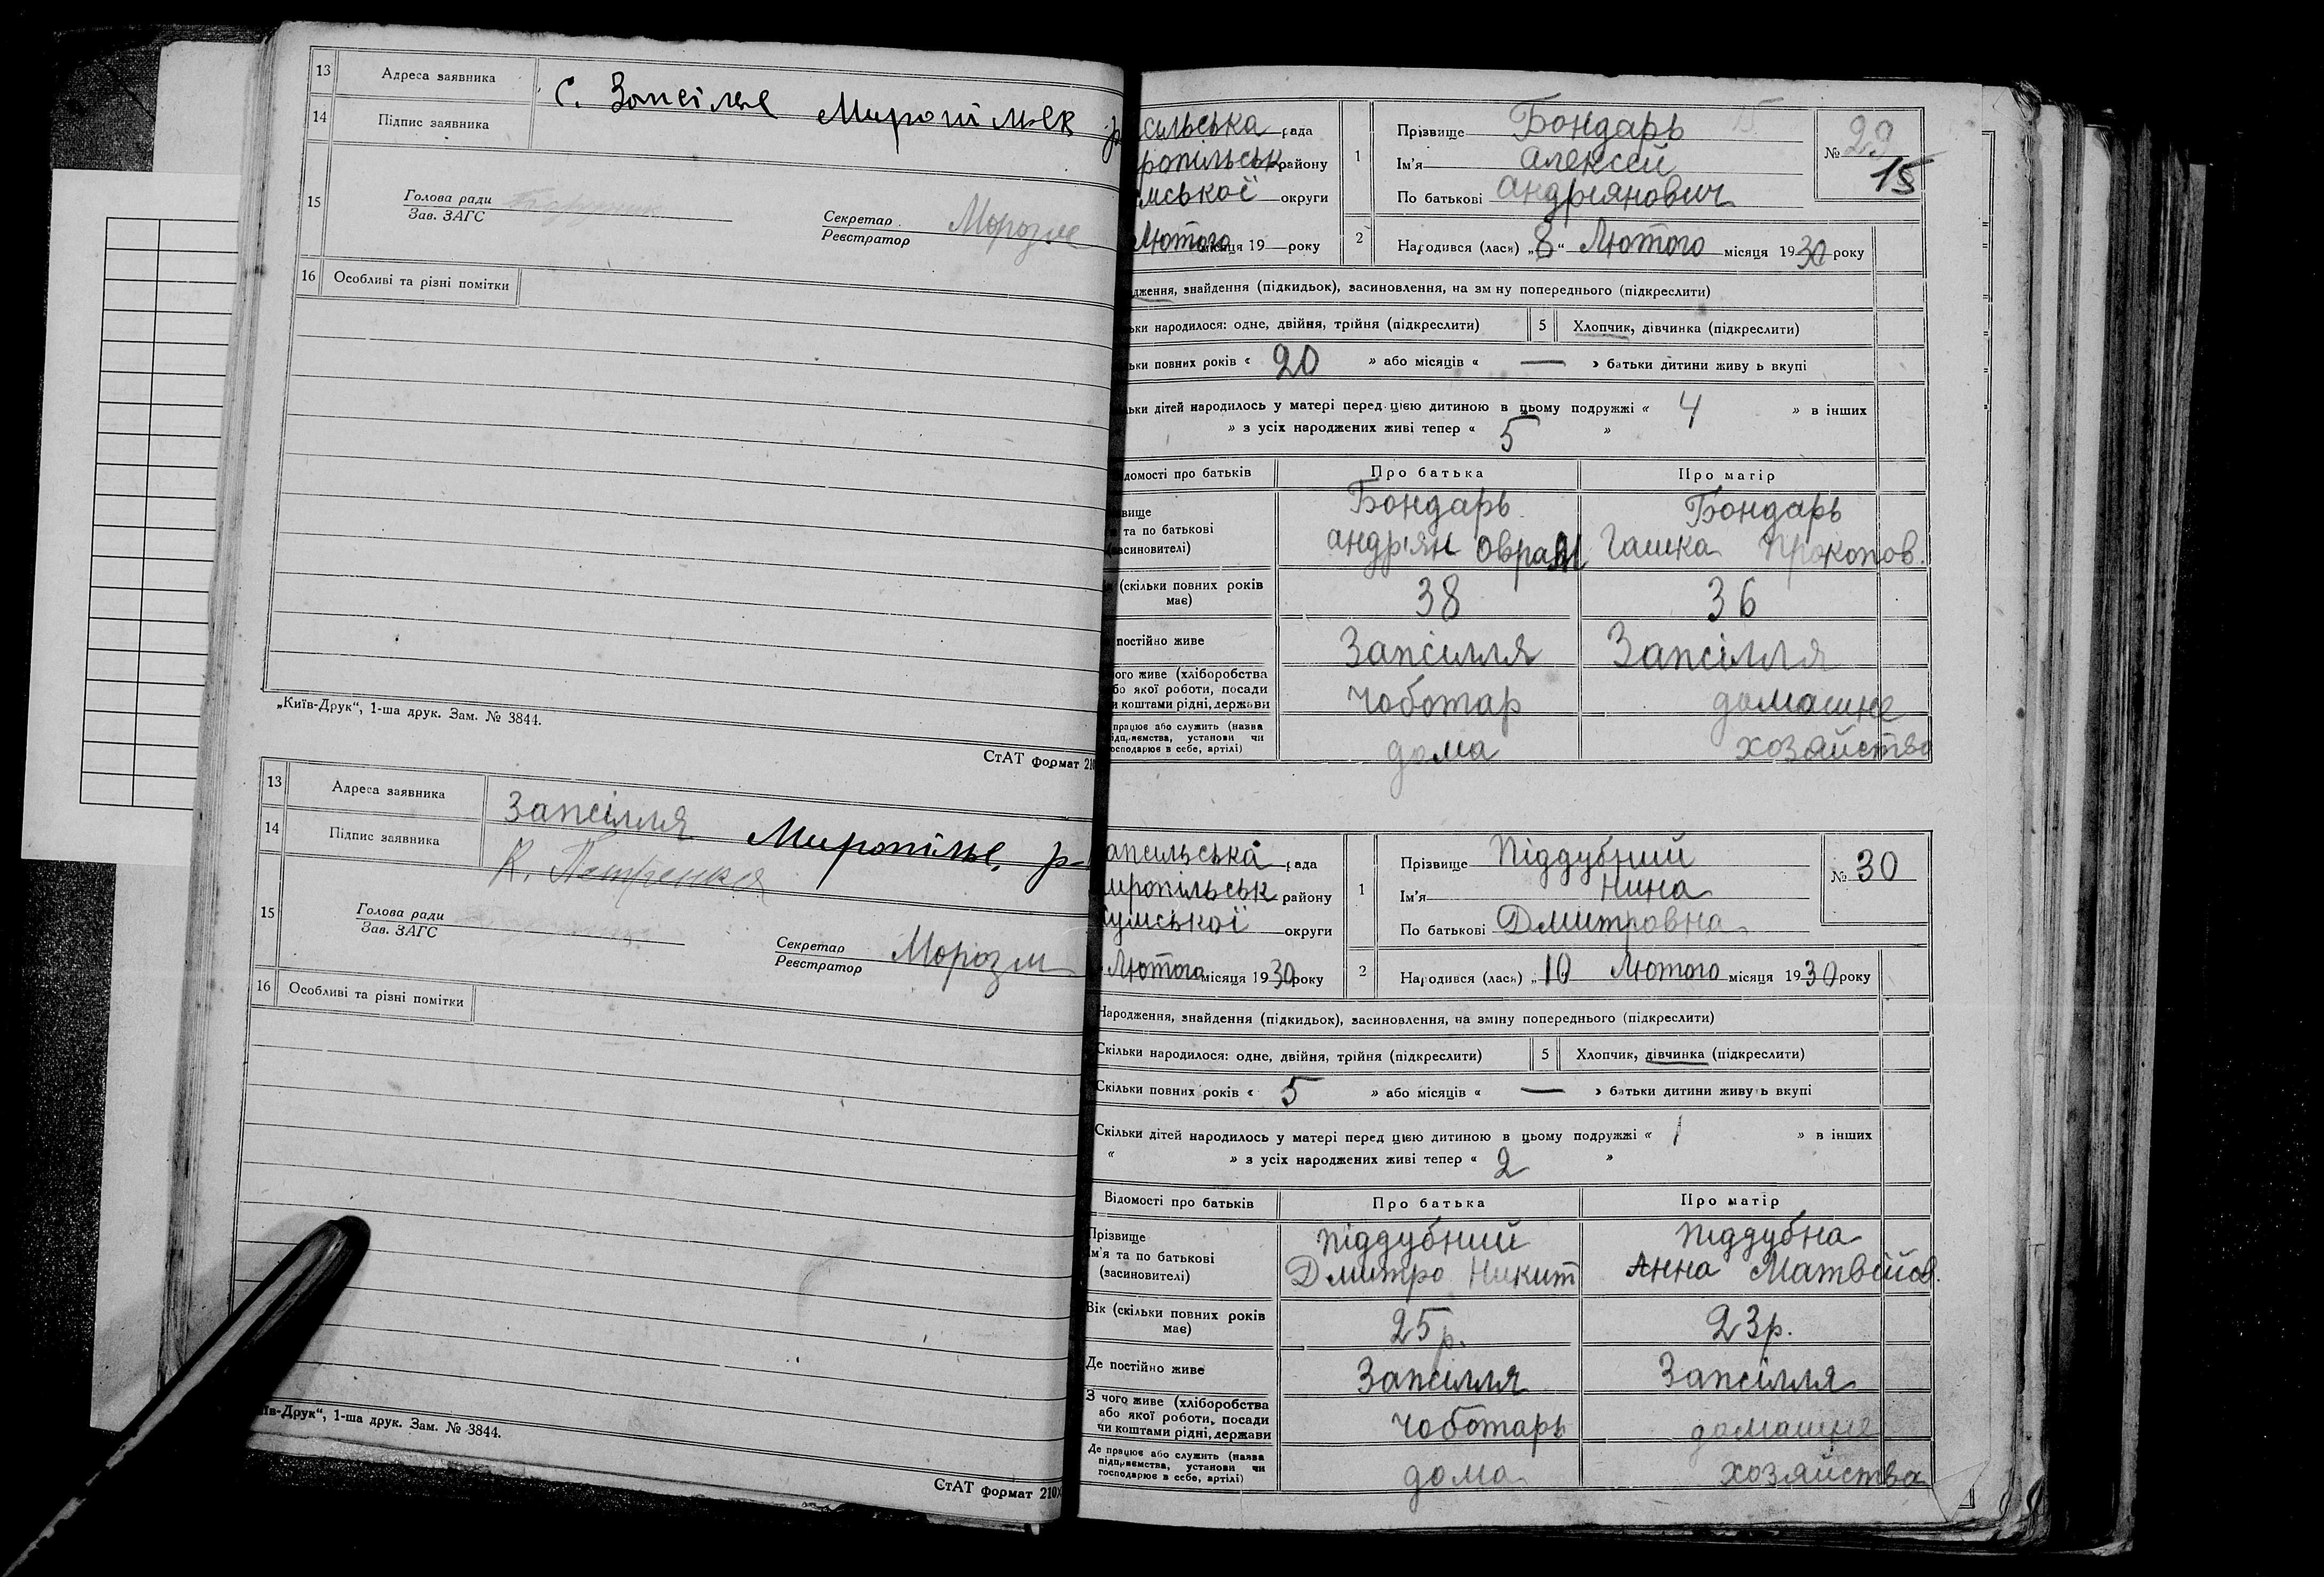 13 Адреса заявника с. Запсілье Миропільск р
14 Підпис заявника
15 Голова ради
Зав. ЗАГС
Секретар
Реєстратор
16 Особливі та різні помітки
„Київ-Друк“, 1-ша друк. Зам. № 3844.
СтАТ формат 210
13 Адреса заявника Запсілля Миропілье, р-
14 Підпис заявника К. Петренко
15 Голова ради
Зав. ЗАГС
Секретар
Реєстратор
16 Особливі та різні помітки
їв-Друк“, 1-ша друк. Зам. № 3844.
СтАТ формат 210
сильська рада
ропільськ району
мської округи
Лютого місяця 19 року
1 Прізвище Бондарь
Ім'я Алексей
По батькові Андріянович
№ 29
15
2 Народився (лася) „8“ Лютого місяця 1930 року
дження, знайдення (підкидьок), васиновлення, на зміну попереднього (підкреслити)
ьки народилося: одне, двійня, трійня (підкреслити) 5 Хлопчик, дівчинка (підкреслити)
ьки повних років « 20 » або місяців « — » батьки дитини живу ь вкупі
льки дітей народилось у матері перед цією дитиною в цьому подружжі « 4 » в інших
» з усіх народжених живі тепер « 5 »
домості про батьків Про батька Про матір
вище Бондарь Бондарь
та по батькові Андріян Гашка Прокопов.
асиновителі)
(скільки повних років має) 38 36
постійно живе Запсилля Запсілля
ого живе (хліборобства
бо якої роботи, посади
и коштами рідні, держави чоботар домашне
працює або служить (назва
ідприємства, установи чи
осподарює в себе, артілі) дома хозяйство
апсильська рада
иропільськ району
Сумської округи
Лютого місяця 1930 року
1 Прізвище Піддубний
Ім'я Нина
По батькові Дмитровна
№ 30
2 Народився (лася) „10 Лютого місяця 1930 року
Народження, знайдення (підкидьок), васиновлення, на зміну попереднього (підкреслити)
Скільки народилося: одне, двійня, трійня (підкреслити) 5 Хлопчик, дівчинка (підкреслити)
Скільки повних років « 5 » або місяців « — » батьки дитини живуть вкупі
Скільки дітей народилось у матері перед цією дитиною в цьому подружжі « 1 » в інших
« » з усіх народжених живі тепер « 2 »
Відомості про батьків Про батька Про матір
Прізвище Піддубний Піддубна
Ім'я та по батькові Дмитро Никит Анна Матвєйов.
(засиновителі)
Вік (скільки повних років має) 25 р. 23 р.
Де постійно живе Запсилля Запсілля
З чого живе (хліборобства
або якої роботи, посади
чи коштами рідні, держави чоботарь домашне
Де працює або служить (назва
підприємства, установи чи
господарює в себе, артілі) дома хозяйства